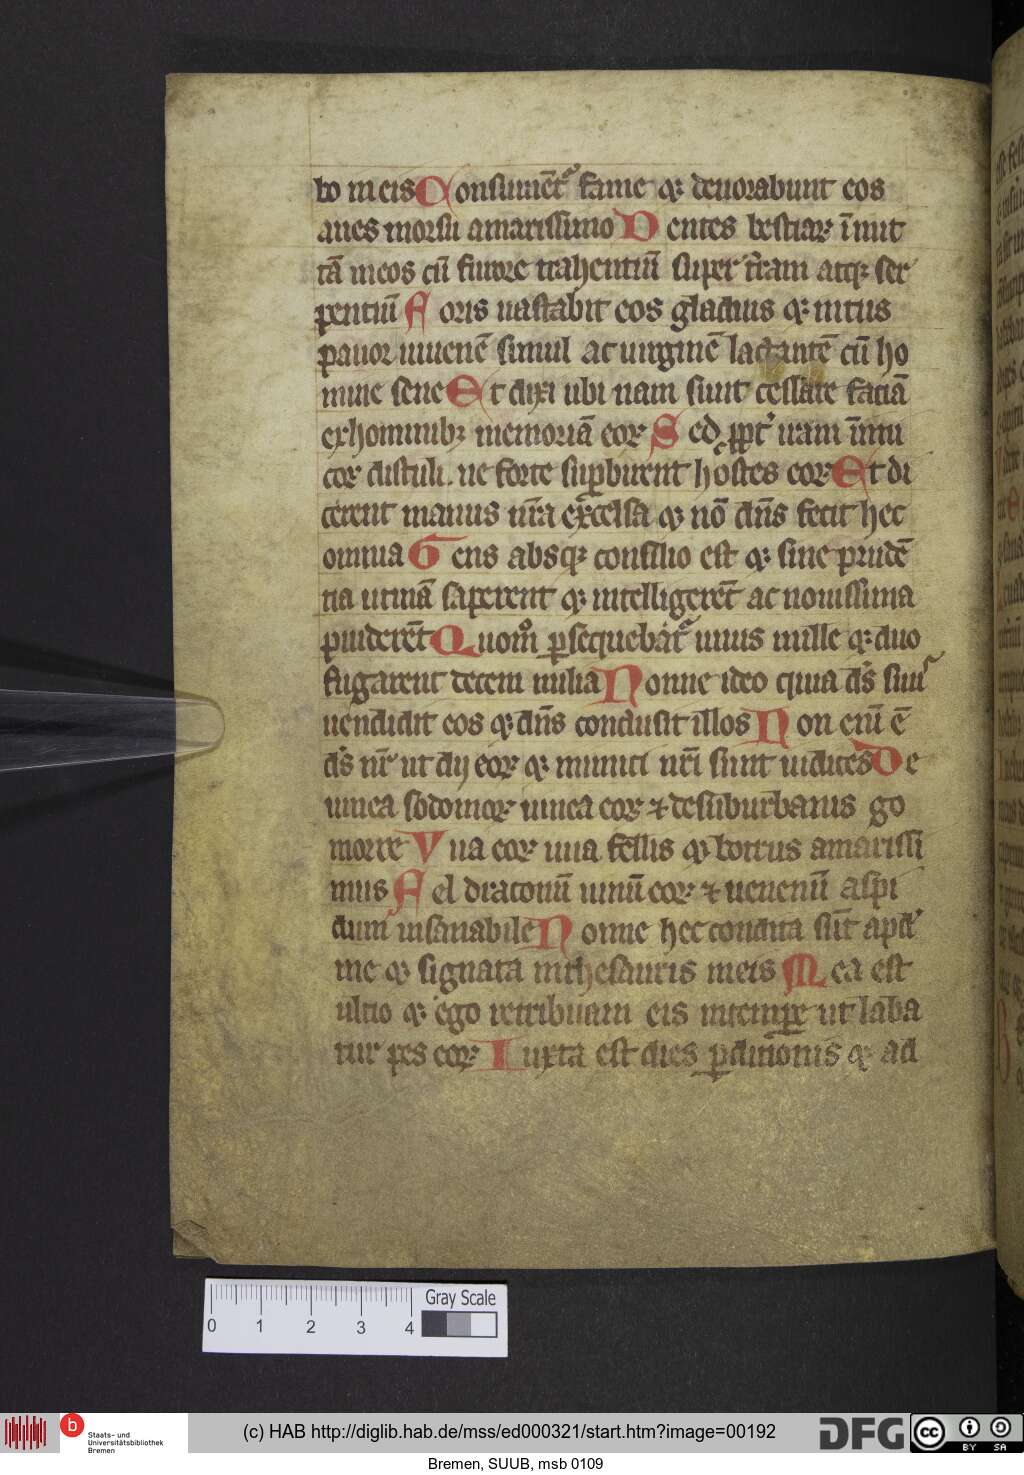 bo meis Consumēt᷑ fame ⁊ deuorabunt eos
aues morsu amarissimo Dentes bestiaꝝ īmit
tā meos cū furore trahentiū super t̄ram atqꝫ ser
pentiū Foris uastabit eos gladius ⁊ intus
pauor iuuenē simul ac uirginē lactantē cū ho
mine sene Et dixi ubi nam sunt cessare faciā
ex hominibꝫ memoriā eoꝝ Sed ꝓpt̾ iram inimi
coꝝ distuli. ne forte suꝑbirent hostes eoꝝ Et di
cerent manus nr̄a excelsa ⁊ nō dn̄s fecit hec
omnia Gens absqꝫ consilio est ⁊ sine prudē
tia utinā saperent ⁊ intelligerēt ac nouissima
prouiderēt Quom̊ ꝑsequebat᷑ unus mille ⁊ duo
fugarent decem milia Nonne ideo quia ds̄ suus
uendidit eos ⁊ dn̄s conclusit illos Non enī ē
ds̄ nr̄ ut dij eoꝝ ⁊ inimici nr̄i sunt iudices De
uinea sodomoꝝ uinea eoꝝ ⁊ de suburbanis go
morre Vua eoꝝ uua fellis ⁊ botrus amarissi
mus Fel draconū uinū eoꝝ ⁊ uenenū aspi
dum insanabile Nonne hec condita sūt apd̾
me ⁊ signata in thesauris meis Mea est
ultio ⁊ ego retribuam eis in tempore ut laba
tur pes eoꝝ Iuxta est dies ꝑditionis ⁊ ad
Gray Scale
0 1 2 3 4
b Staats- und
Universitätsbibliothek
Bremen
(c) HAB http://diglib.hab.de/mss/ed000321/start.htm?image=00192
DFG
cc BY SA
Bremen, SUUB, msb 0109